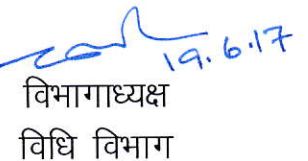 19.6.17
विभागाध्यक्ष
विधि विभाग